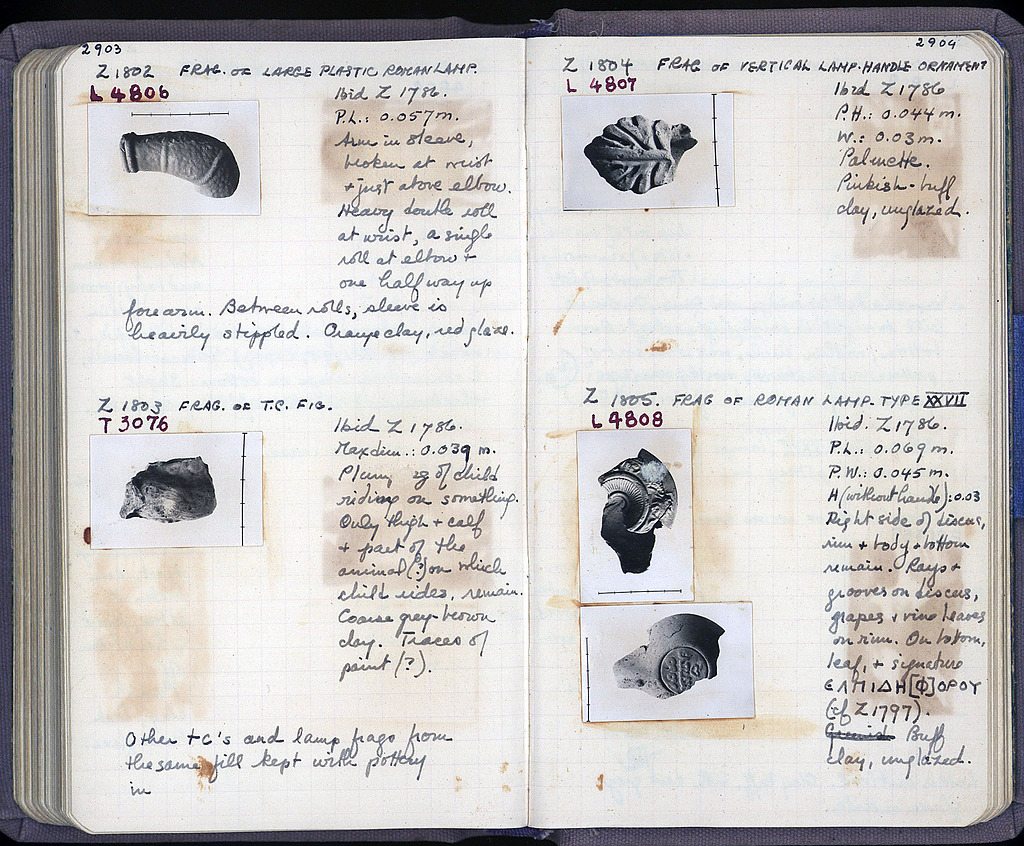 2903
Z 1802 FRAG. OF LARGE PLASTIC ROMAN LAMP.
L 4806
Ibid Z 1786.
P.L.: 0.057m.
Arm in sleeve,
broken at wrist
+ just above elbow.
Heavy double roll
at wrist, a single
roll at elbow +
one half way up
forearm. Between rolls, sleeve is
heavily stippled. Orange clay, red glaze.
Z 1803 FRAG. OF T.C. FIG.
T 3076
Ibid Z 1786.
Max dim.: 0.039 m.
Plump leg of child
riding on something.
Only thigh + calf
+ part of the
animal (?) on which
child rides, remain.
Coarse grey-brown
clay. Traces of
paint (?).
Other tc's and lamp frags from
the same fill kept with pottery
in
2904
Z 1804 FRAG OF VERTICAL LAMP-HANDLE ORNAMENT
L 4807
Ibid Z1786
P.H.: 0.044 m.
W.: 0.03m.
Palmette.
Pinkish-buff
clay, unglazed.
Z 1805. FRAG OF ROMAN LAMP-TYPE XXVII
L4808
Ibid. Z1786.
P.L.: 0.069 m.
P.W.: 0.045 m.
H (without handle): 0.03
Right side of discus,
rim + body + bottom
remain. Rays +
grooves on discus,
grapes + vine leaves
on rim. On bottom,
leaf, + signature
ЄΛΠΙΔΗ[Φ]ΟΡΟΥ
(cf Z1797).
Buff
clay, unglazed.